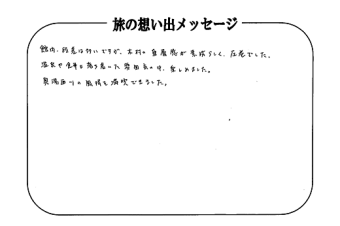 旅の想い出メッセージ
館内、段差は多いですが、木材の重厚感が素晴らしく、圧巻でした。
温泉や食事も落ち着いた雰囲気の中、楽しめました。
奥湯西川の風情を満喫できました。